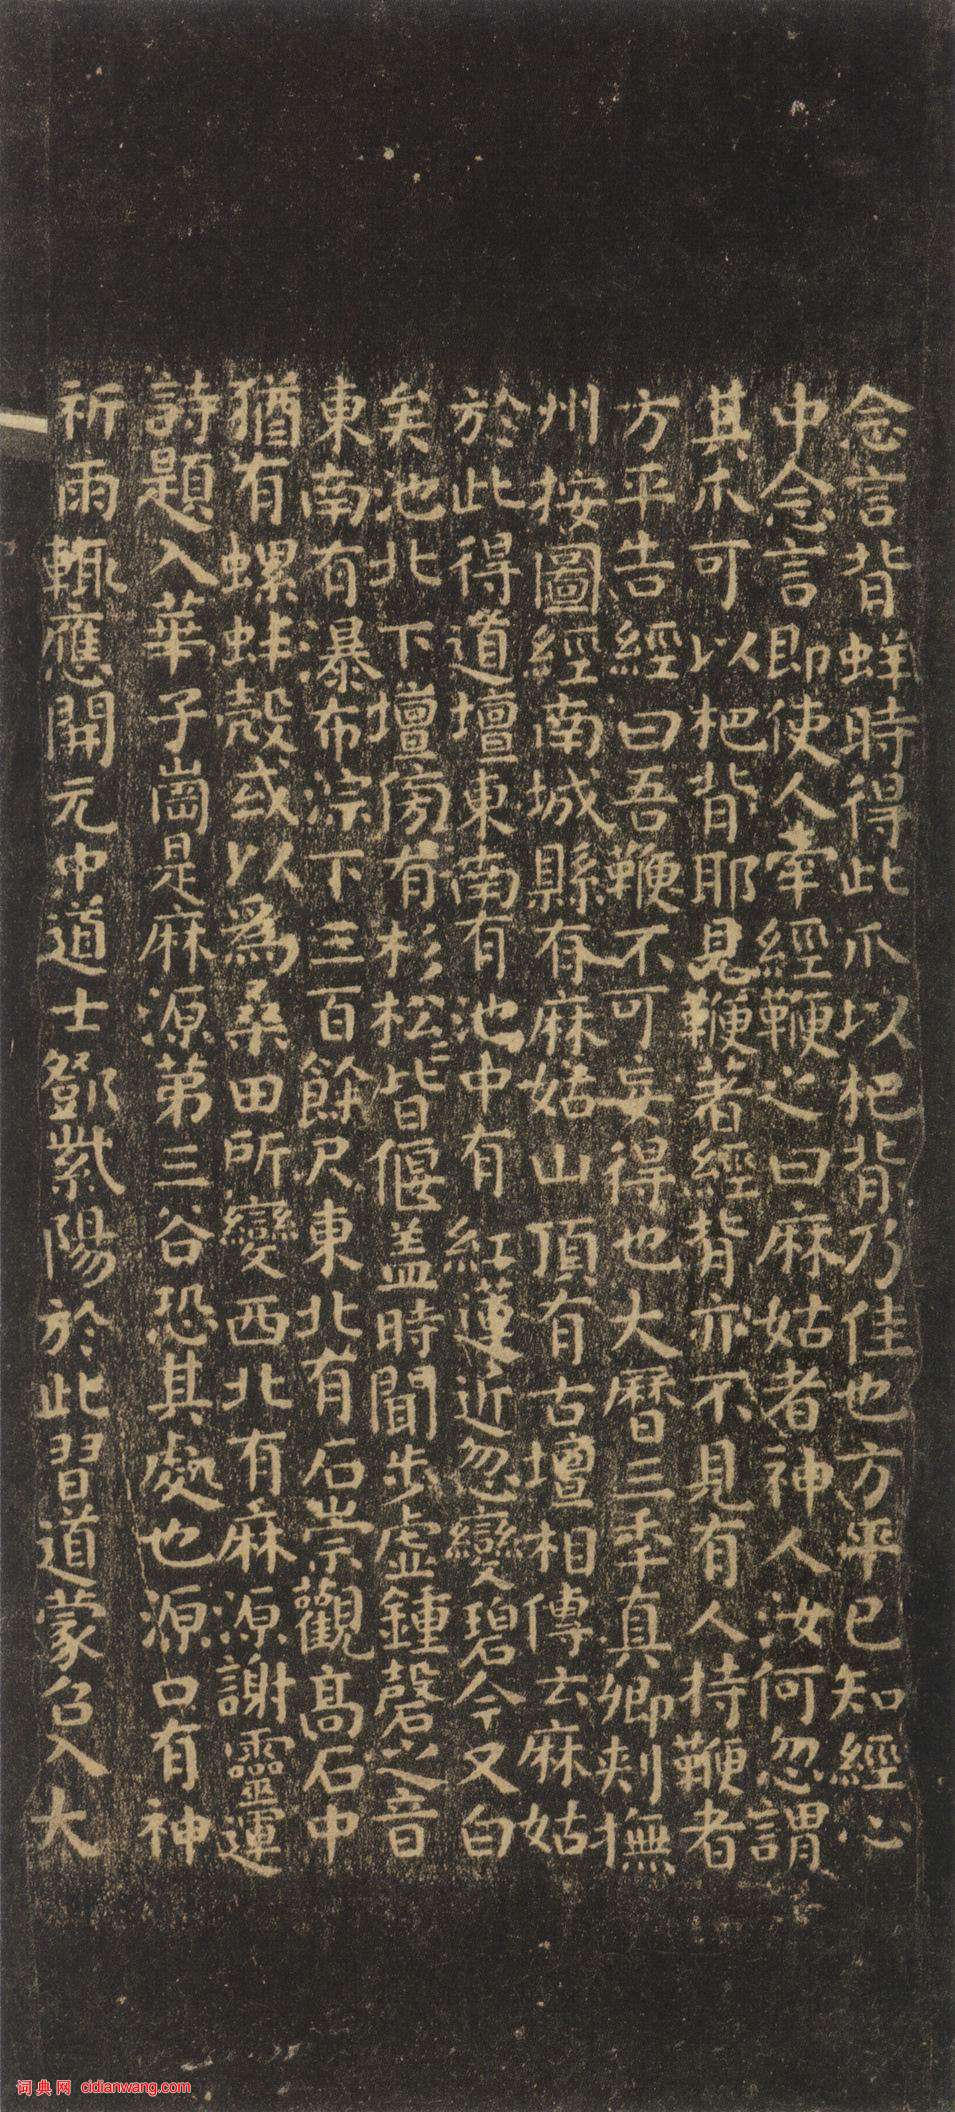 念言背蛘時得此爪以杷背乃佳也方平已知經心
中念言即使人牽經鞭之曰麻姑者神人汝何忽謂
其爪可以杷背耶見鞭著經背亦不見有人持鞭者
方平告經曰吾鞭不可妄得也大曆三年真卿刺撫
州按圖經南城縣有麻姑山頂有古壇相傳云麻姑
於此得道壇東南有池中有紅蓮近忽變碧今又白
矣池北下壇傍有杉松松皆偃蓋時聞步虛鍾磬之音
東南有瀑布淙下三百餘尺東北有石崇觀高石中
猶有螺蚌殼或以為桑田所變西北有麻源謝靈運
詩題入華子崗是麻源第三谷恐其處也源口有神
祈雨輒應開元中道士鄧紫陽於此習道蒙召入大
词典网 cidianwang.com